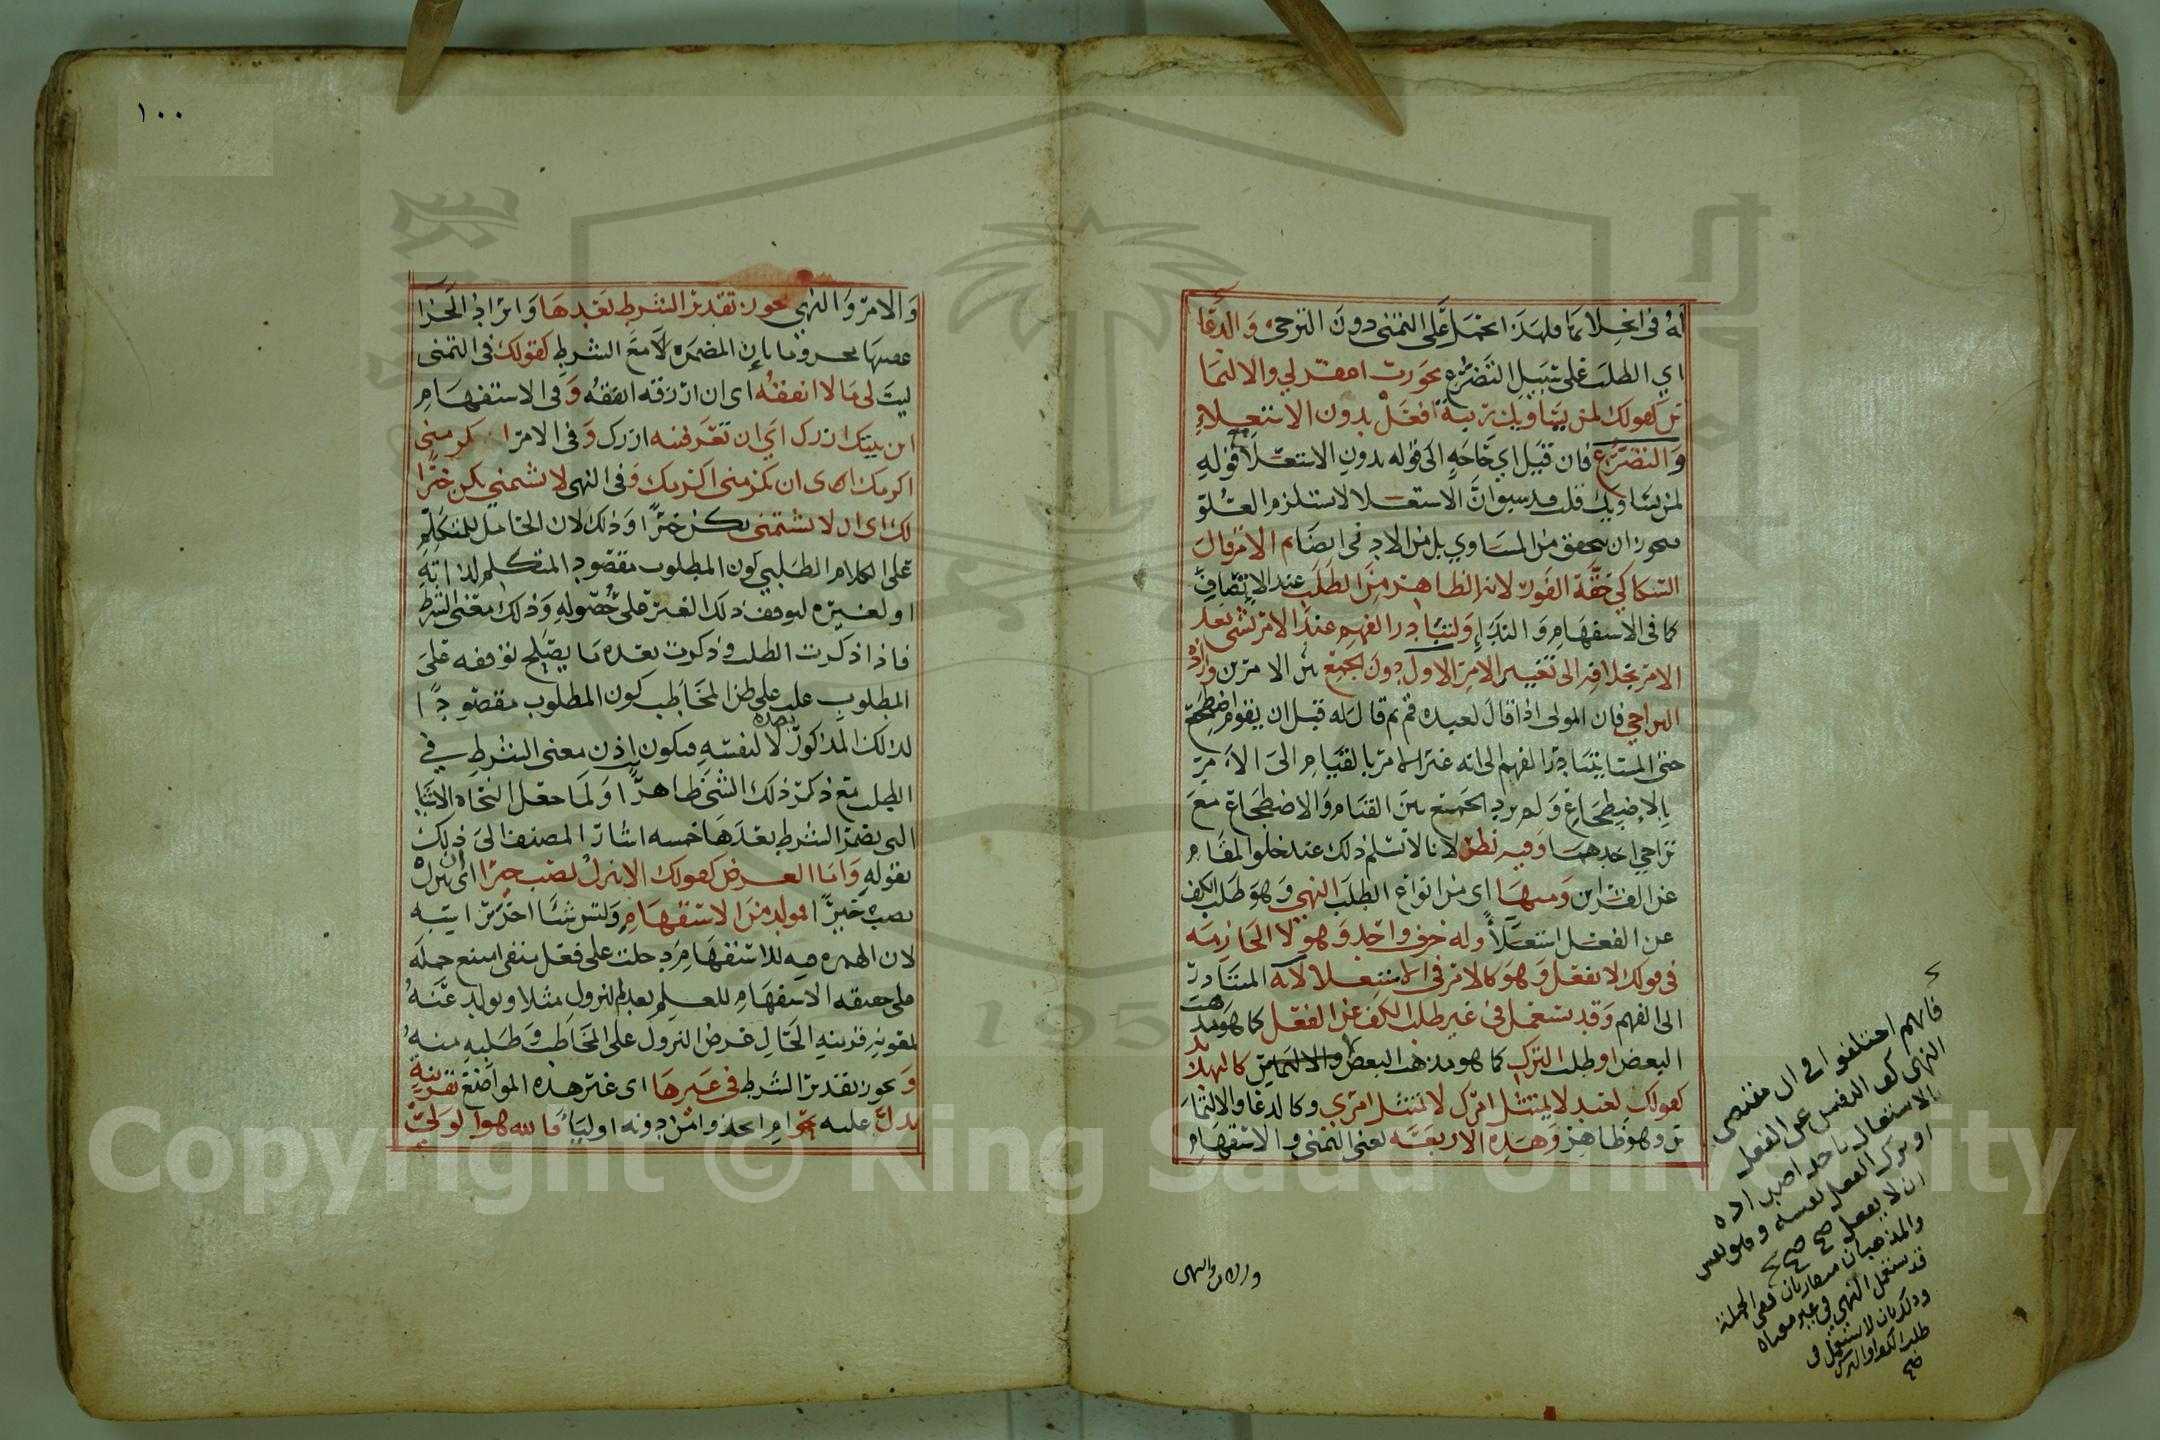 له في انجلائها فلهذا يحمل على التمني دون الترجي والدعا
اي الطلب على سبيل التضرع نحو رب اغفر لي والالتما
س كقولك لمن يساويك رتبة افعل بدون الاستعلاء
والتضرع فان قيل اي حاجة الى قوله بدون الاستعلا مع قوله
لمن يساويك قلت قد سبق ان الاستعلا لا يستلزم العلو
فيجوز ان يتحقق من المساوي بل من الادنى ايضا ثم الامر قال
السكاكي حقه الفور لانه الظاهر من الطلب عند الانصاف
كما في الاستفهام والندا ولتبادر الفهم عند الامر بشي بعد
الامر بخلافه الى تغيير الامر الاول دون الجمع بين الامرين وارادة
التراخي فان المولى اذا قال لعبده قم ثم قال له قبل ان يقوم اضطجع
حتى المسا يتبادر الفهم الى انه غير الامر بالقيام الى الامر
بالاضطجاع ولم يرد الجمع بين القيام والاضطجاع مع
تراخي احدهما وفيه نظر لانا لا نسلم ذلك عند خلو المقام
عن القراين ومنها اي من انواع الطلب النهي وهو طلب الكف
عن الفعل استعلاءً وله حرف واحد وهو لا الجازمة
في قولك لا تفعل وهو كالامر في الاستعلا لانه المتبادر
الى الفهم وقد يستعمل في غير طلب الكف عن الفعل كما هو مذهب
البعض او طلب الترك كما هو مذهب البعض والالتماس كالتهديد
كقولك لعبد لا يمتثل امرك لا تمتثل امري وكالدعا والالتما
س وهو ظاهر وهذه الاربعة يعني التمني والاستفهام
والامر والنهي
فانهم اختلفوا في ان مقتضى
النهي كف النفس عن الفعل
بالاشتغال باحد اضداده
او ترك الفعل نفسه وهو نفس
ان لا يفعل صح صح
والمذهبان متقاربان ففي الجملة
قد يستعمل النهي في غير معناه
وذلك بان لا يستعمل في
طلب الكف او الترك
صح
١٠٠
والامر والنهي يجوز تقدير الشرط بعدها وايراد الجزا
عقيبها مجزوما بإن المضمرة مع الشرط كقولك في التمني
ليت لي مالا انفقه اي ان ارزقه انفقه وفي الاستفهام
اين بيتك ازرك اي ان تعرفنيه ازرك وفي الامر اكرمني
اكرمك اي ان تكرمني اكرمك وفي النهي لا تشتمني يكن خيرا
لك اي ان لا تشتمني يكن خيرا وذلك لان الحامل للمتكلم
على الكلام الطلبي كون المطلوب مقصود المتكلم لذاته
او لغيره لتوقف ذلك الغير على حصوله وذلك معنى الشرط
فاذا ذكرت الطلب وذكرت بعده ما يصلح توقفه على
المطلوب غلب على ظن المخاطب كون المطلوب مقصودا
لذلك المذكور بعده لا لنفسه فيكون اذن معنى الشرط في
الطلب مع ذكر ذلك الشئ ظاهرا ولما جعل النحاة الاشيا
التي يضمر الشرط بعدها خمسة اشار المصنف الى ذلك
بقوله واما العرض كقولك الا تنزل تصب خيرا اي ان تنزل
تصب خيرا فمولد من الاستفهام وليس شيئا اخر براسه
لان الهمزة فيه للاستفهام دخلت على فعل منفي امتنع حمله
على حقيقة الاستفهام للعلم بعدم النزول مثلا وتولد عنه
بمعونة قرينة الحال عرض النزول على المخاطب وطلبه منه
ويجوز تقدير الشرط في غيرها اي غير هذه المواضع لقرينة
تدل عليه نحو ام اتخذوا من دونه اولياء فالله هو الولي